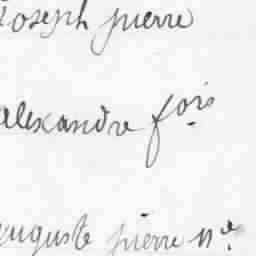 joseph pierre
alexandre fois
auguste pierre n.e